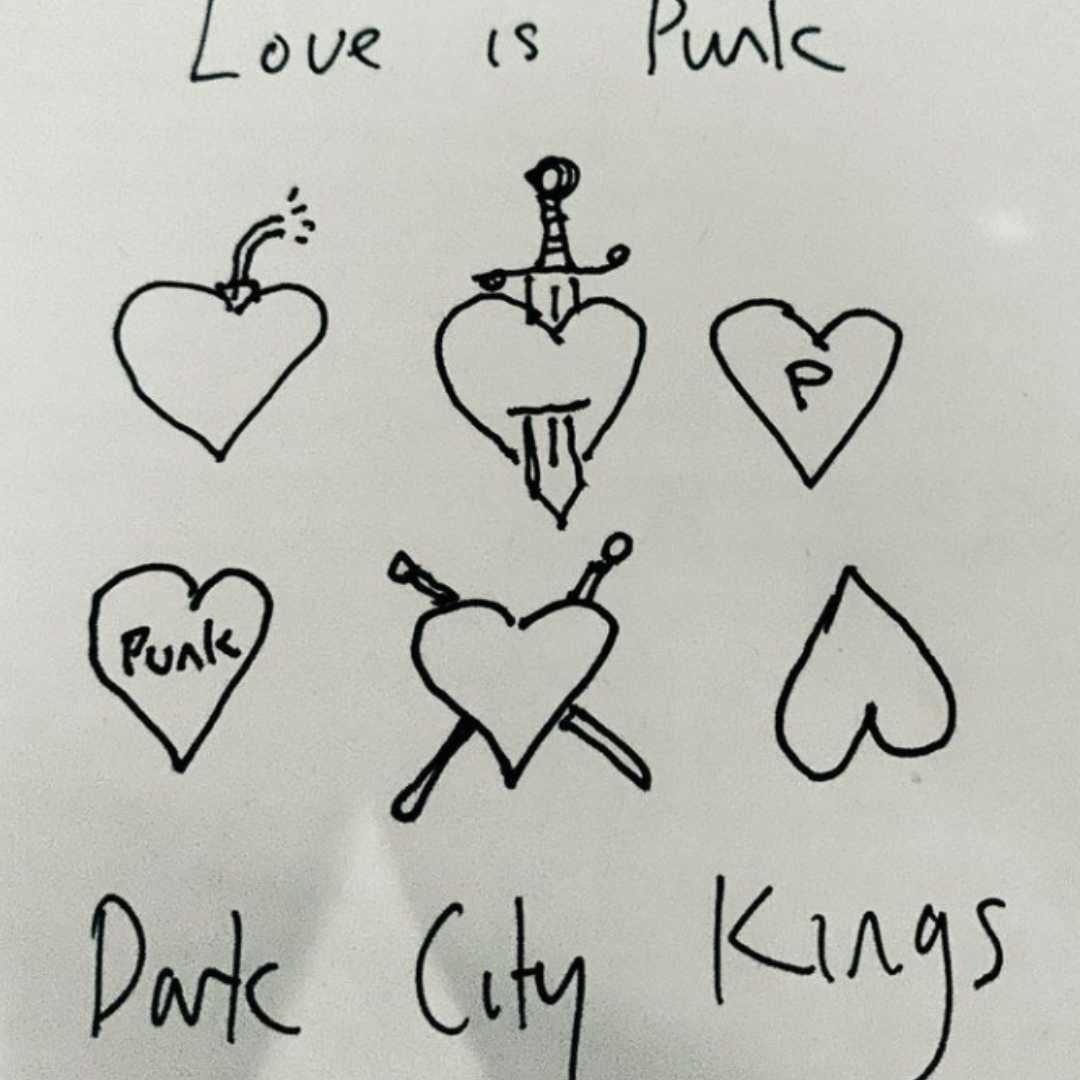 Love is Punk
P
Punk
Dark City Kings